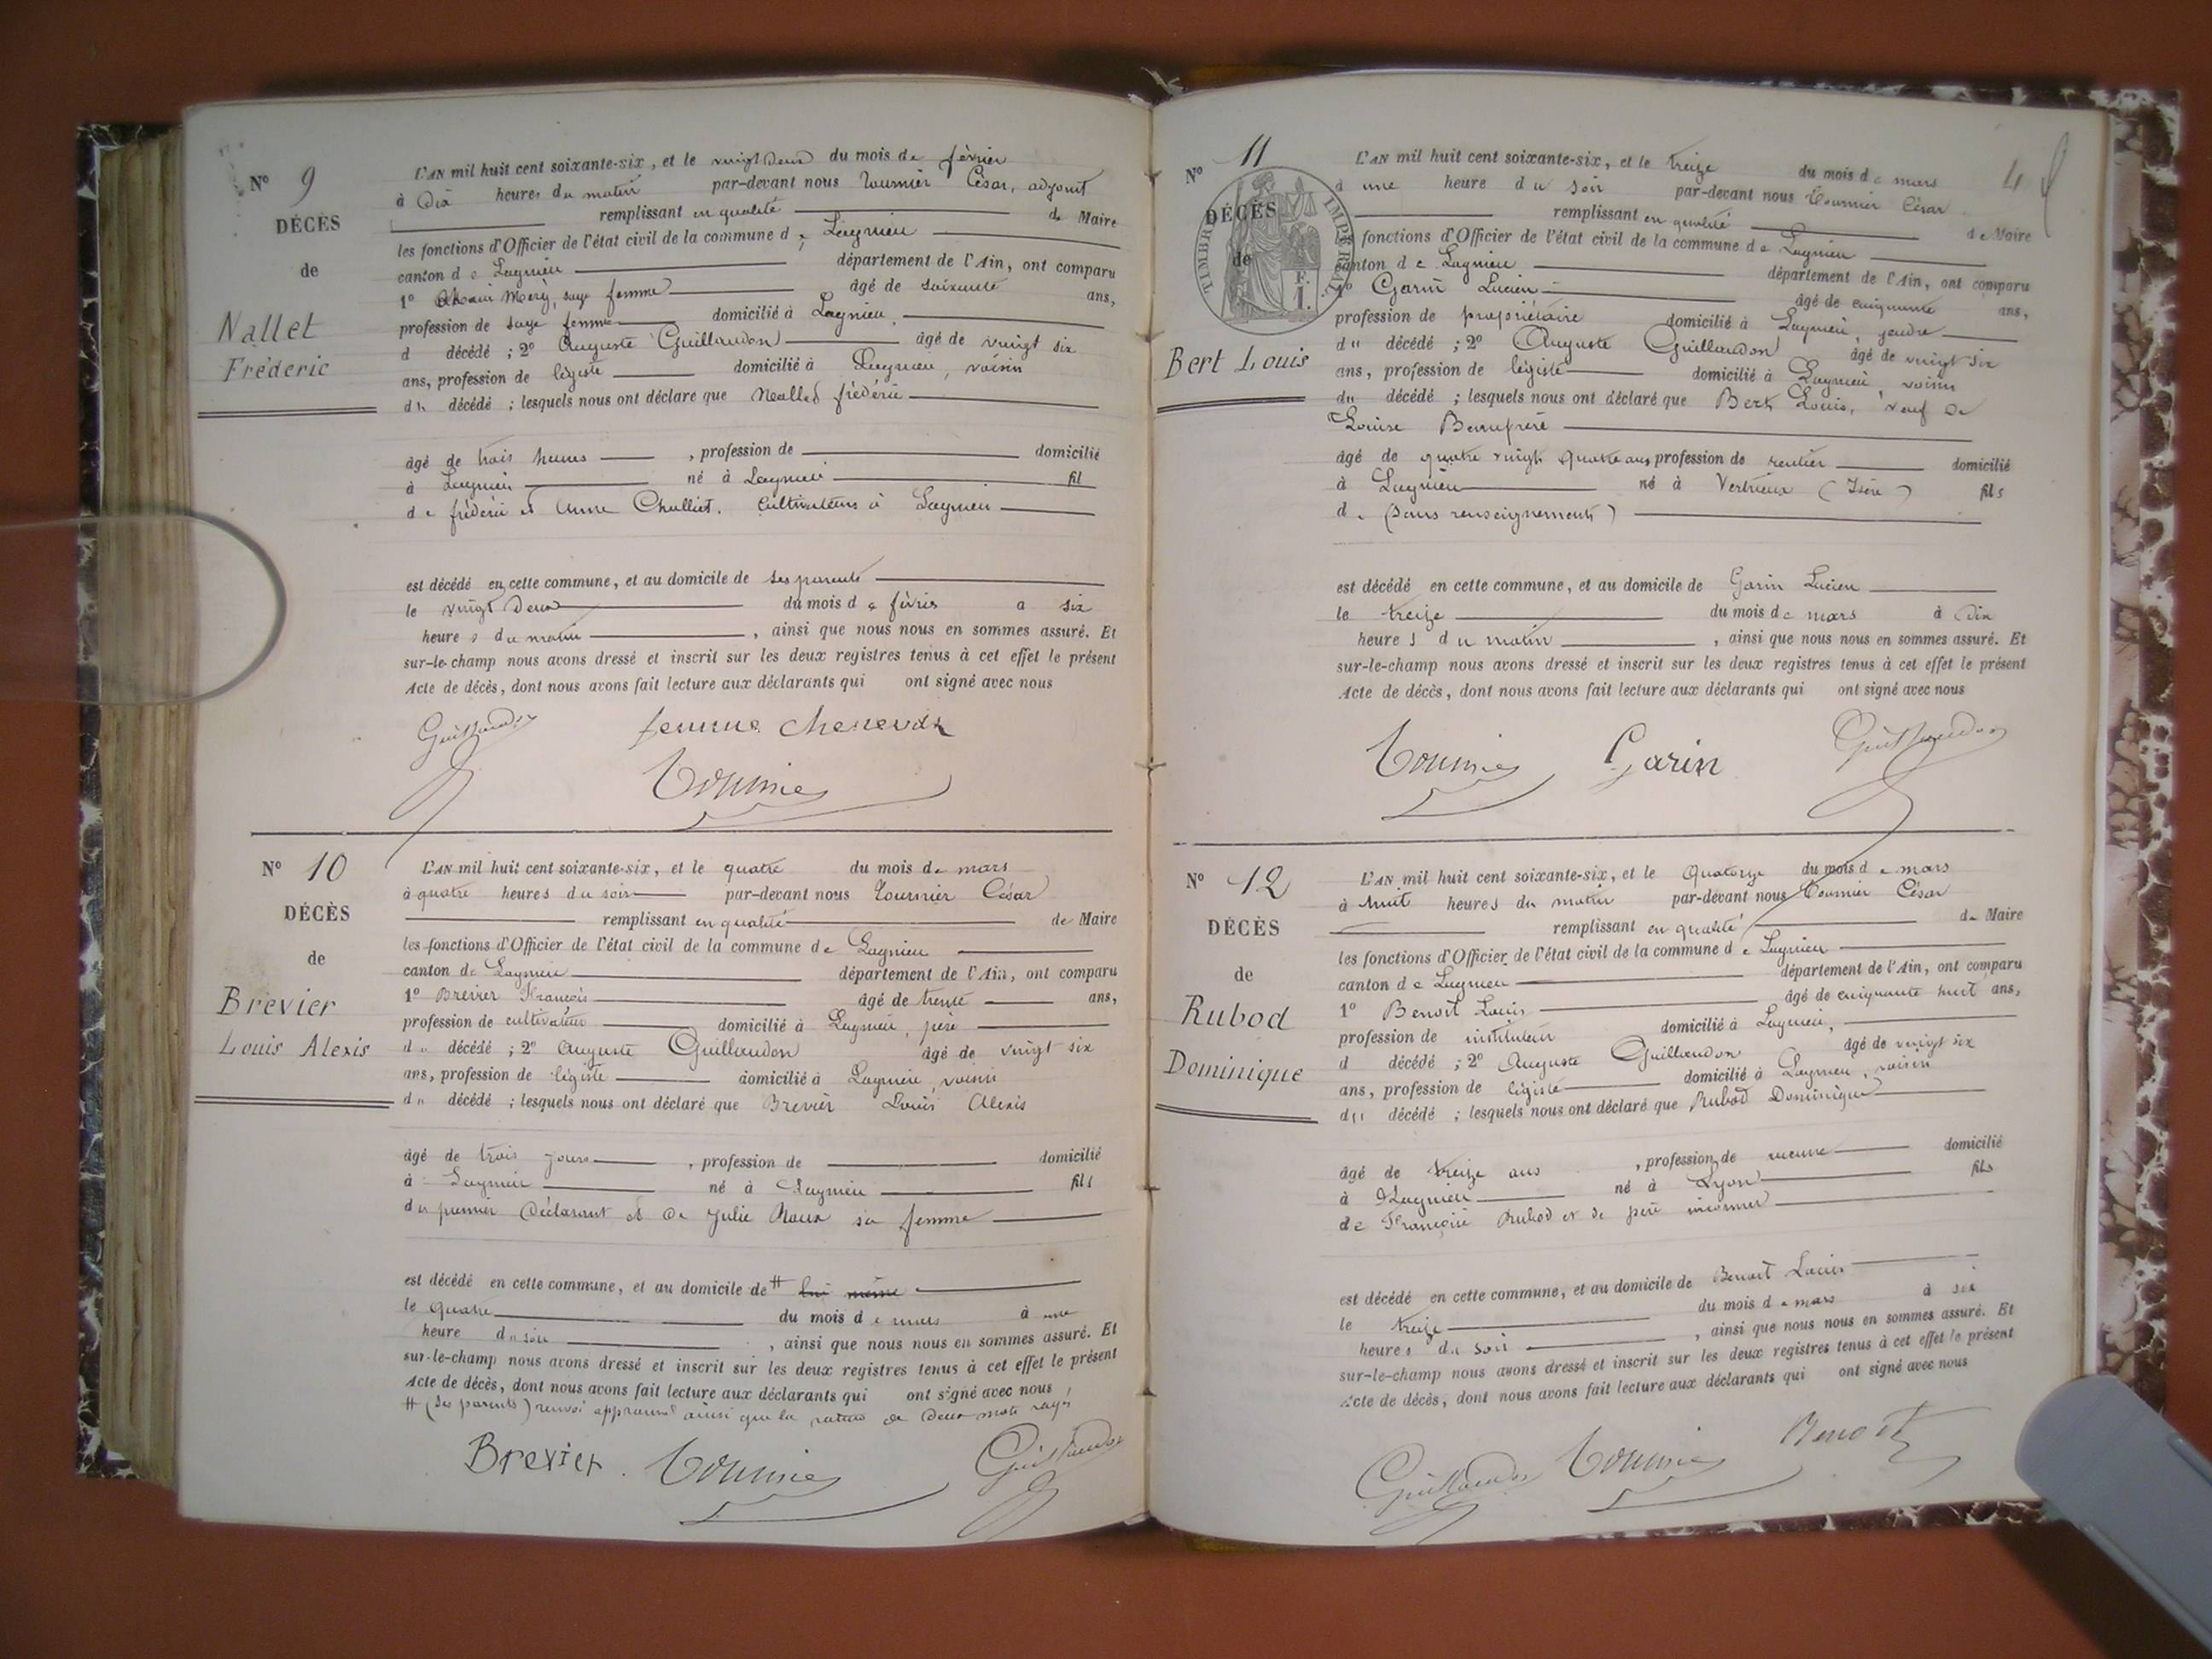 N° 9
DÉCÈS
de
Nallet
Fréderic
L'AN mil huit cent soixante-six, et le vingt deux du mois de février
à Dix heures du matin par-devant nous Tournier César, adjoint
remplissant en qualité de Maire
les fonctions d'Officier de l'état civil de la commune de Lagnieu
canton de Lagnieu département de l'Ain, ont comparu
1° Méry, sage femme âgé de soixante ans,
profession de sage femme domicilié à Lagnieu,
d décédé ; 2° Auguste Guillaudon âgé de vingt six
ans, profession de légiste domicilié à Lagnieu, voisin
du décédé ; lesquels nous ont déclaré que Nallet frédéric
âgé de trois heures , profession de domicilié
à Lagnieu né à Lagnieu fil
de frédéric et Anne Challiet. Cultivateurs à Lagnieu
est décédé en cette commune, et au domicile de ses parents
le vingt Deux du mois de février à six
heures du matin , ainsi que nous nous en sommes assuré. Et
sur-le-champ nous avons dressé et inscrit sur les deux registres tenus à cet effet le présent
Acte de décès, dont nous avons fait lecture aux déclarants qui ont signé avec nous
Guillaudon femme cheneval
Tournier
N° 10
DÉCÈS
de
Brevier
Louis Alexis
L'AN mil huit cent soixante-six, et le quatre du mois de mars
à quatre heures du soir par-devant nous Tournier César
remplissant en qualité de Maire
les fonctions d'Officier de l'état civil de la commune de Lagnieu
canton de Lagnieu département de l'Ain, ont comparu
1° Brevier François âgé de trente ans,
profession de cultivateur domicilié à Lagnieu, père
du décédé ; 2° Auguste Guillaudon âgé de vingt six
ans, profession de légiste domicilié à Lagnieu, voisin
du décédé ; lesquels nous ont déclaré que Brevier Louis Alexis
âgé de trois jours , profession de domicilié
à Lagnieu né à Lagnieu fils
du premier Déclarant et de Julie Roux sa femme
est décédé en cette commune, et au domicile de # lui même
le quatre du mois de mars à une
heure du soir , ainsi que nous nous en sommes assuré. Et
sur-le-champ nous avons dressé et inscrit sur les deux registres tenus à cet effet le présent
Acte de décès, dont nous avons fait lecture aux déclarants qui ont signé avec nous,
# (ses parents) renvoi approuvé ainsi que la rature de Deux mots rayés
Brevier Tournier Guillaudon
N° 11
DÉCÈS
de
TIMBRE IMPÉRIAL
F.
1.
Bert Louis
4
L'AN mil huit cent soixante-six, et le treize du mois de mars
à une heure du soir par-devant nous Tournier César
remplissant en qualité de Maire
les fonctions d'Officier de l'état civil de la commune de Lagnieu
canton de Lagnieu département de l'Ain, ont comparu
1° Garin Lucien âgé de cinquante ans,
profession de propriétaire domicilié à Lagnieu, gendre
du décédé ; 2° Auguste Guillaudon âgé de vingt six
ans, profession de légiste domicilié à Lagnieu, voisin
du décédé ; lesquels nous ont déclaré que Bert Louis, veuf de
Louise
âgé de quatre vingt quatre ans profession de rentier domicilié
à Lagnieu né à Vertrieux (Isère) fils
de (sans renseignements)
est décédé en cette commune, et au domicile de Garin Lucien
le treize du mois de mars à Dix
heures du matin , ainsi que nous nous en sommes assuré. Et
sur-le-champ nous avons dressé et inscrit sur les deux registres tenus à cet effet le présent
Acte de décès, dont nous avons fait lecture aux déclarants qui ont signé avec nous
Tournier Garin Guillaudon
N° 12
DÉCÈS
de
Rubod
Dominique
L'AN mil huit cent soixante-six, et le Quatorze du mois de mars
à huit heures du matin par-devant nous Tournier César
remplissant en qualité de Maire
les fonctions d'Officier de l'état civil de la commune de Lagnieu
canton de Lagnieu département de l'Ain, ont comparu
1° Benoit Louis âgé de cinquante huit ans,
profession de instituteur domicilié à Lagnieu,
d décédé ; 2° Auguste Guillaudon âgé de vingt six
ans, profession de légiste domicilié à Lagnieu, voisin
du décédé ; lesquels nous ont déclaré que Rubod Dominique
âgé de treize ans , profession de aucune domicilié
à Lagnieu né à Lyon fils
de Françoise Rubod et de père inconnu
est décédé en cette commune, et au domicile de Benoit Louis
le treize du mois de mars à six
heures du soir , ainsi que nous nous en sommes assuré. Et
sur-le-champ nous avons dressé et inscrit sur les deux registres tenus à cet effet le présent
Acte de décès, dont nous avons fait lecture aux déclarants qui ont signé avec nous
Guillaudon Tournier Benoit